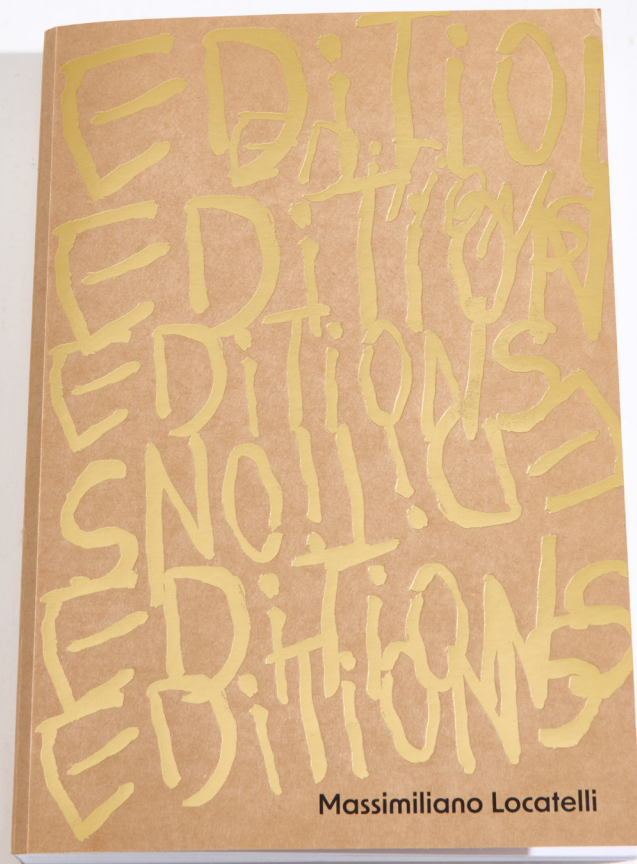 EDiTiON
EDiTiONS
EDiTiON
EDiTiONS
EDiTiONS
EDiTiONS
EDiTiONS
Massimiliano Locatelli